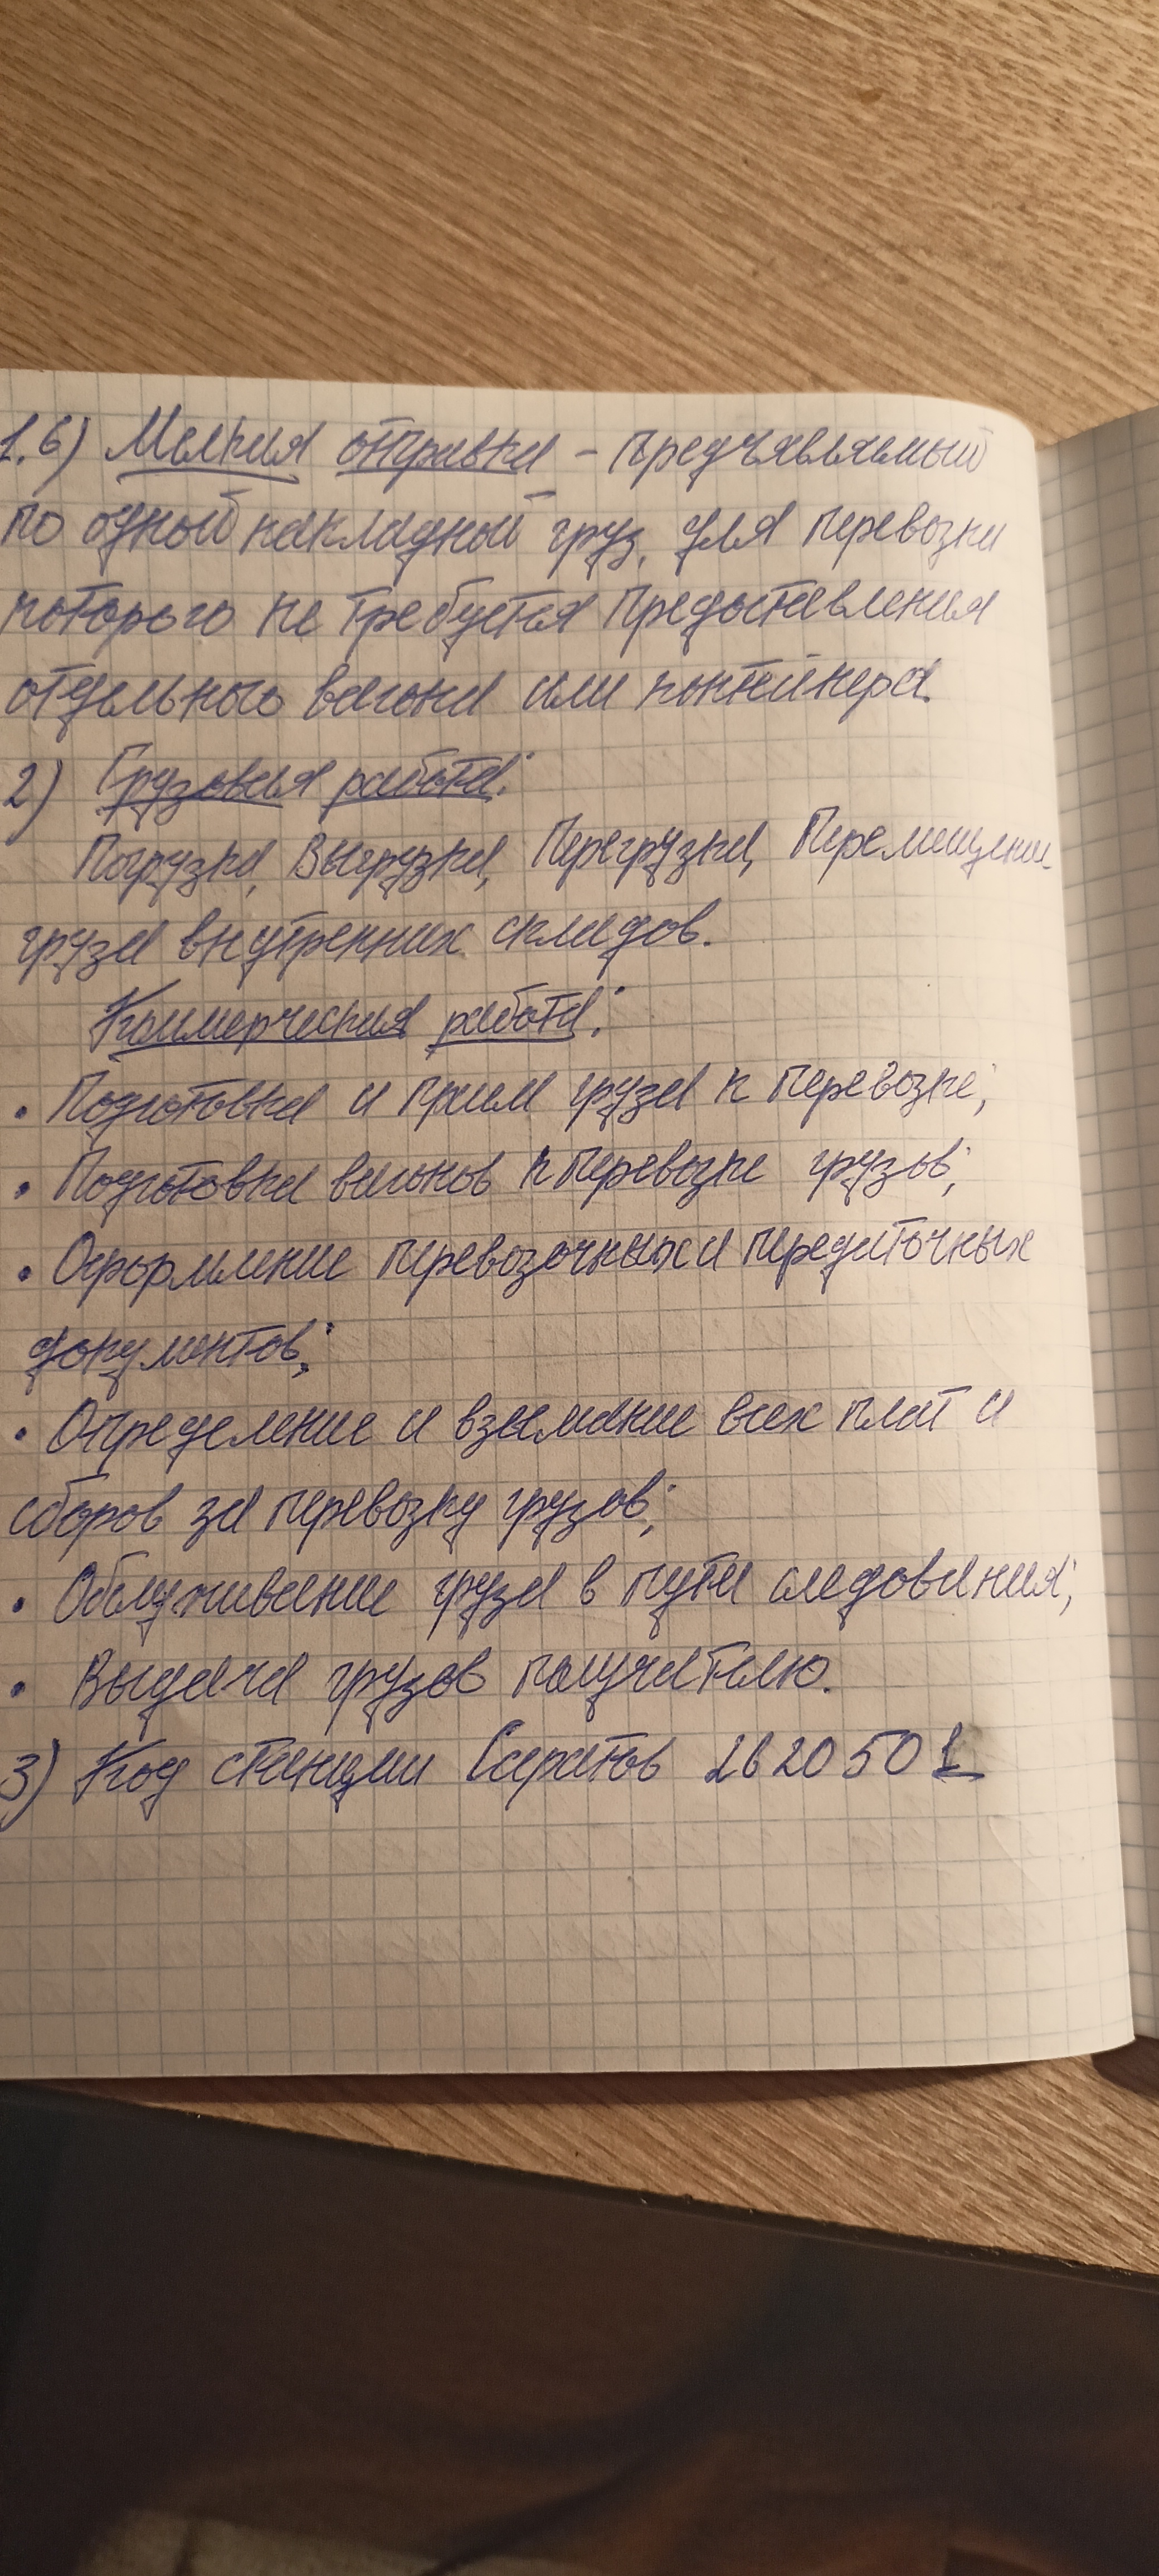 1.б) Мелкая отправка - предъявляемый
по одной накладной груз, для перевозки
которого не требуется предоставления
отдельного вагона или контейнера
2) Грузовая работа:
Погрузка, Выгрузка, Перегрузка, Перемещение
груза внутренних складов.
Коммерческая работа:
• Подготовка и прием груза к перевозке;
• Подготовка вагонов к перевозке грузов;
• Оформление перевозочных и передаточных
документов;
• Определение и взимание всех плат и
сборов за перевозку грузов;
• Обслуживание груза в пути следования;
• Выдача грузов получателю.
3) Код станции Саратов 262050 1